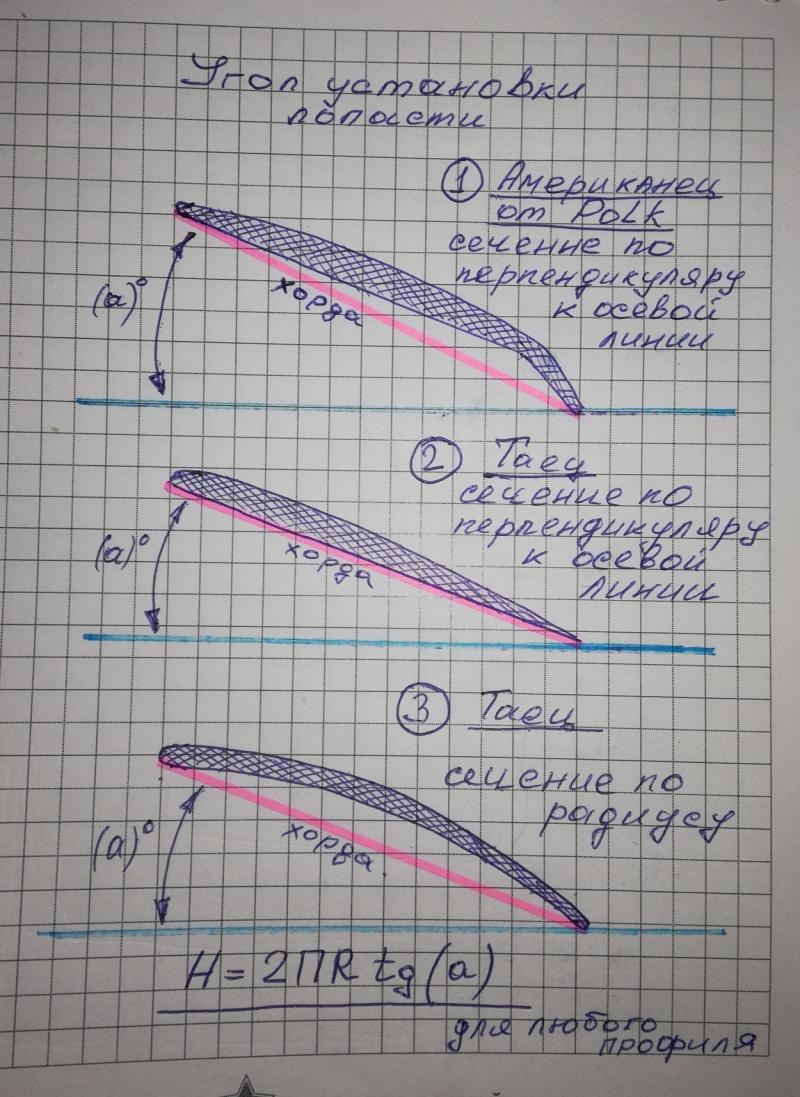 Угол установки
лопасти
1 Американец
от PoLk
сечение по
перпендикуляру
к осевой
линии
(a)°
хорда
2 Таец
сечение по
перпендикуляру
к осевой
линии
(a)°
хорда
3 Таец
сечение по
радиусу
(a)°
хорда
H = 2ПR tg(a)
для любого
профиля